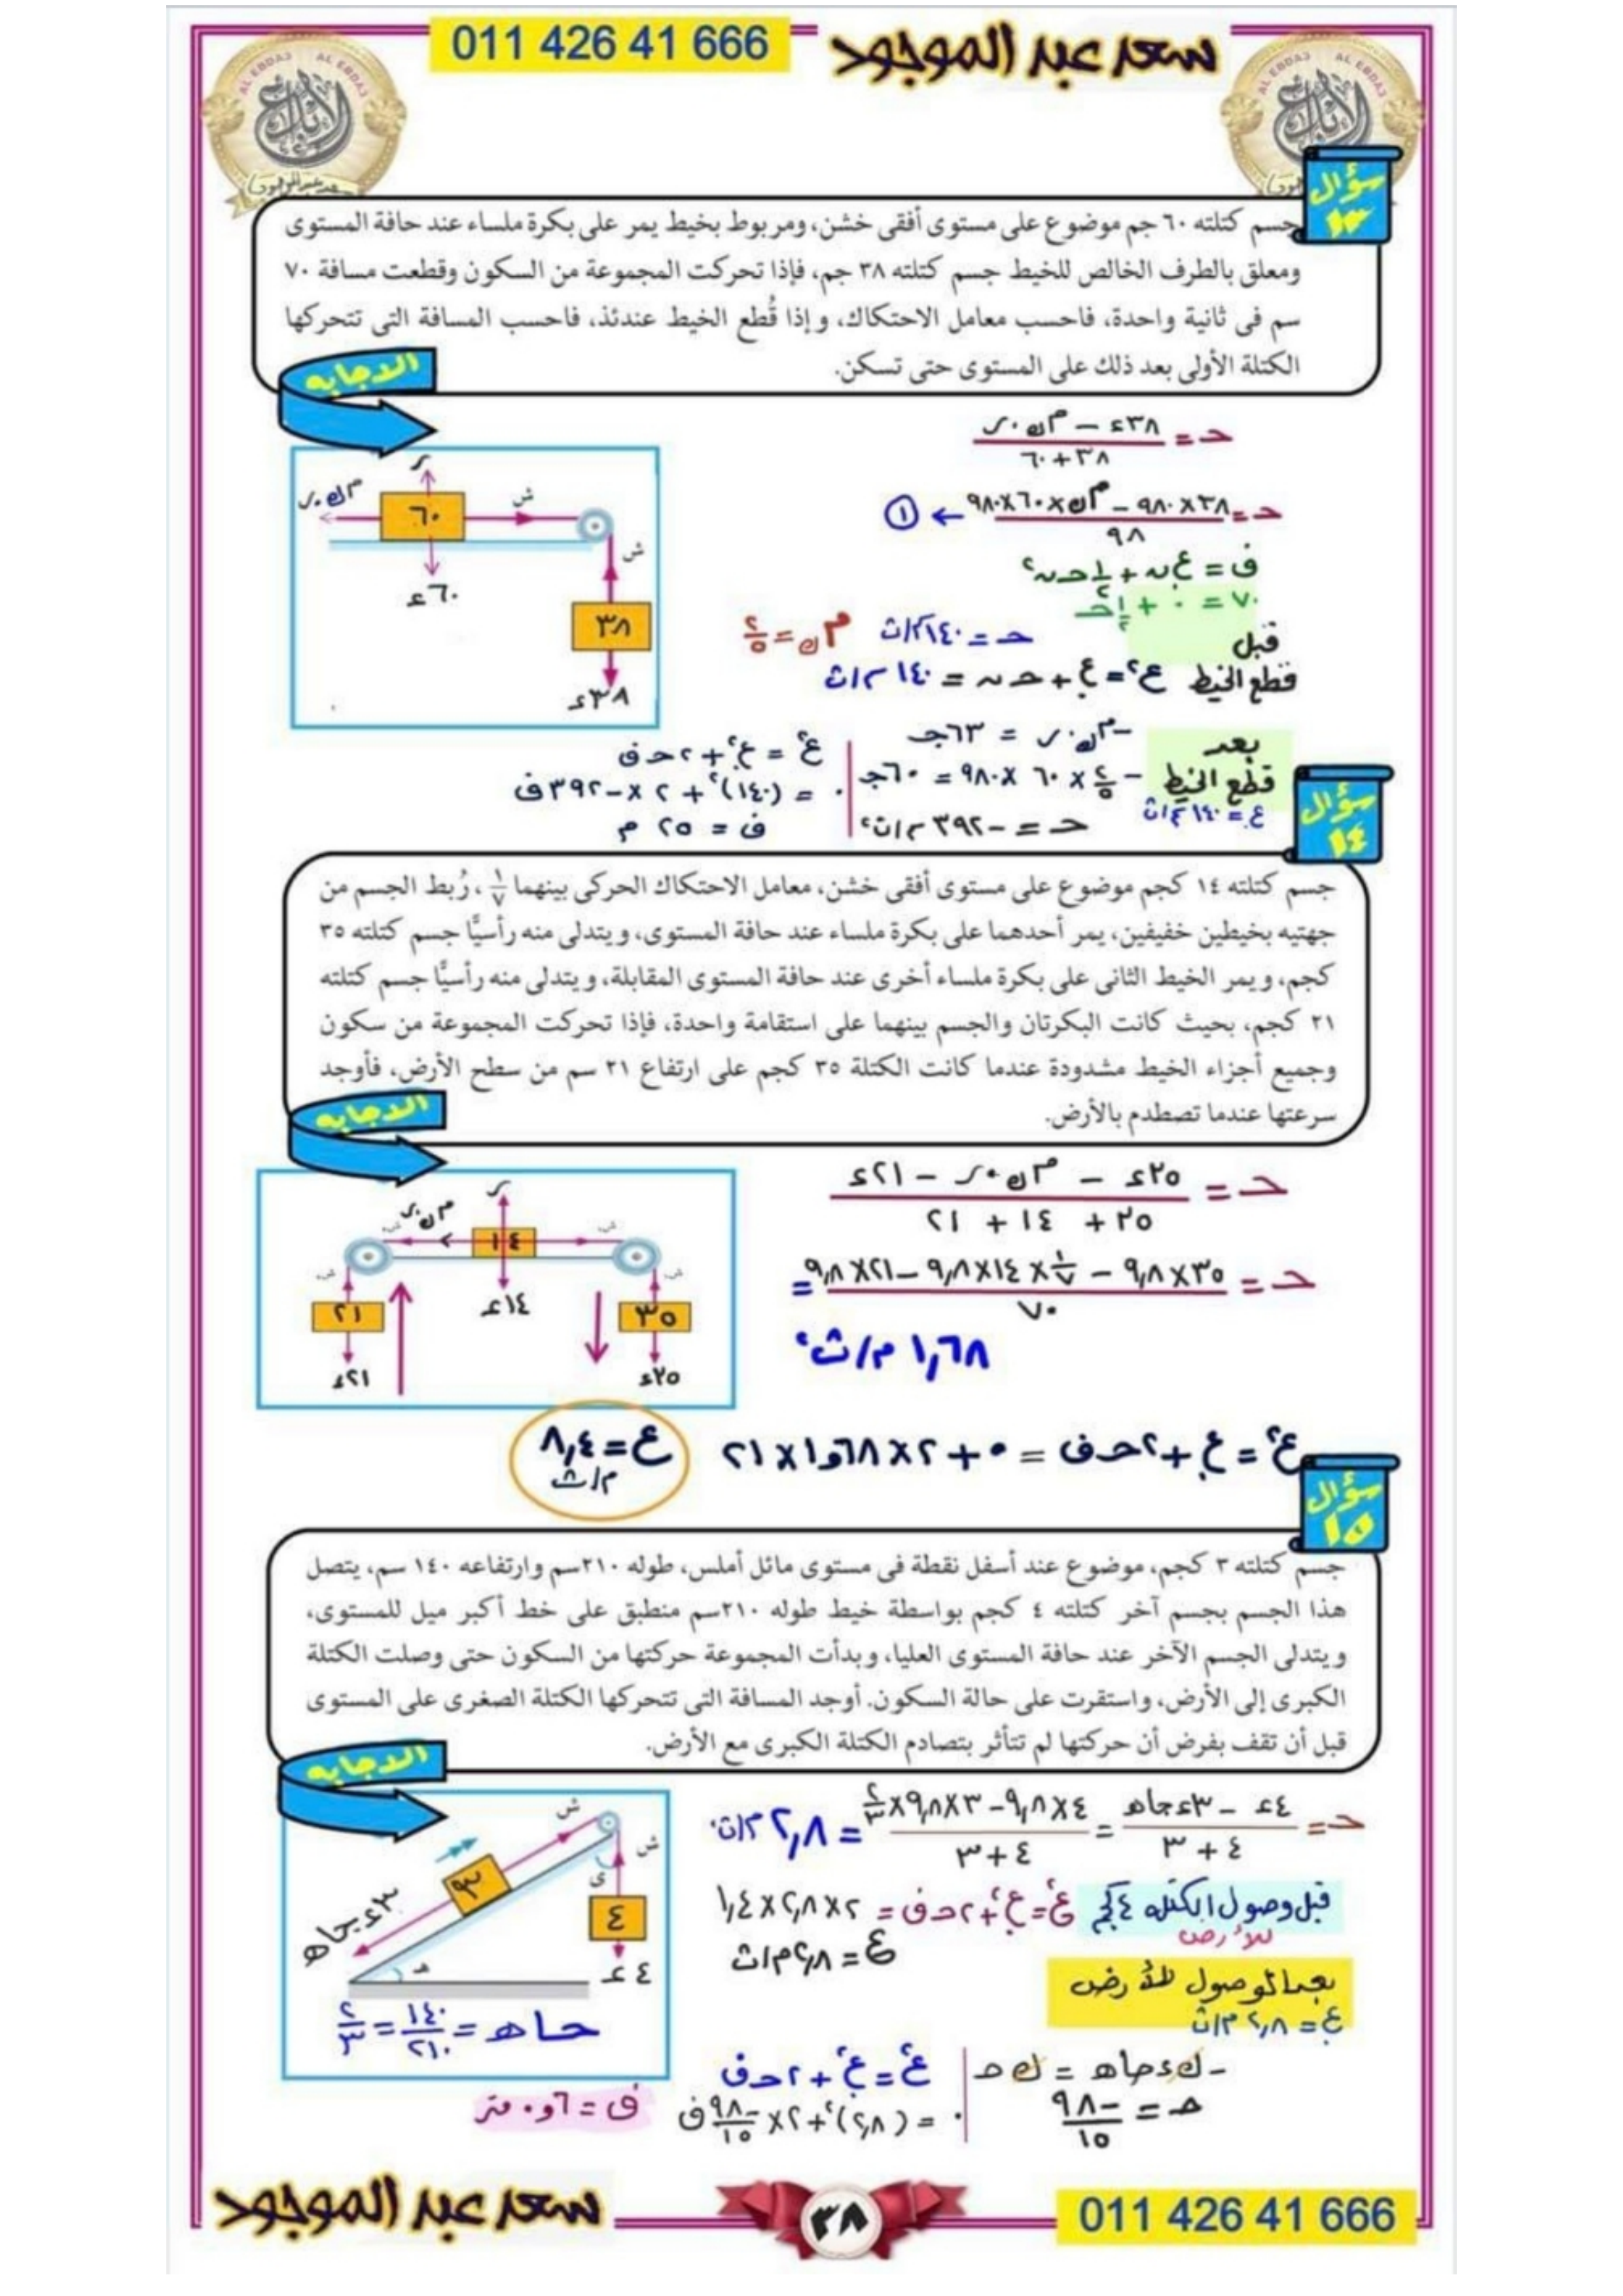 011 426 41 666
سعد عبد الموجود
AL EBDA3 AL EBDA3
الإبداع
AL EBDA3 AL EBDA3
الإبداع
سؤال
١٣
جسم كتلته ٦٠ جم موضوع على مستوى أفقى خشن، ومربوط بخيط يمر على بكرة ملساء عند حافة المستوى
ومعلق بالطرف الخالص للخيط جسم كتلته ٣٨ جم، فإذا تحركت المجموعة من السكون وقطعت مسافة ٧٠
سم فى ثانية واحدة، فاحسب معامل الاحتكاك، وإذا قُطع الخيط عندئذ، فاحسب المسافة التى تتحركها
الكتلة الأولى بعد ذلك على المستوى حتى تسكن.
الاجابه
حـ = (٣٨ء − م ك . ر) / (٣٨ + ٦٠)
حـ = (٣٨ × ٩٨٠ − م ك × ٦٠ × ٩٨٠) / ٩٨ ← ①
ف = ع. ن + ١/٢ حـ ن²
٧٠ = ٠ + ١/٢ حـ
حـ = ١٤٠ سم/ث² م ك = ٢/٥
قبل
قطع الخيط ع = ع. + حـ ن = ١٤٠ سم/ث
ر
م ك . ر
٦٠
ش
ش
٦٠ء
٣٨
٣٨ء
بعد
قطع الخيط
ع. = ١٤٠ سم/ث
− م ك . ر = ٦٣جـ
− ٢/٥ × ٦٠ × ٩٨٠ = ٦٠جـ
حـ = −٣٩٢ سم/ث²
ع² = ع.² + ٢ حـ ف
٠ = (١٤٠)² + ٢ × −٣٩٢ ف
ف = ٢٥ م
سؤال
١٤
جسم كتلته ١٤ كجم موضوع على مستوى أفقى خشن، معامل الاحتكاك الحركى بينهما ١/٧، رُبط الجسم من
جهتيه بخيطين خفيفين، يمر أحدهما على بكرة ملساء عند حافة المستوى، ويتدلى منه رأسيًّا جسم كتلته ٣٥
كجم، ويمر الخيط الثانى على بكرة ملساء أخرى عند حافة المستوى المقابلة، ويتدلى منه رأسيًّا جسم كتلته
٢١ كجم، بحيث كانت البكرتان والجسم بينهما على استقامة واحدة، فإذا تحركت المجموعة من سكون
وجميع أجزاء الخيط مشدودة عندما كانت الكتلة ٣٥ كجم على ارتفاع ٢١ سم من سطح الأرض، فأوجد
سرعتها عندما تصطدم بالأرض.
الاجابه
حـ = (٣٥ء − م ك . ر − ٢١ء) / (٣٥ + ١٤ + ٢١)
حـ = (٣٥ × ٩,٨ − ١/٧ × ١٤ × ٩,٨ − ٢١ × ٩,٨) / ٧٠ =
١,٦٨ م/ث²
ر
م ك . ر
ش
١٤
ش
ش
ش
٢١
١٤ء
٣٥
٢١ء
٣٥ء
ع² = ع. + ٢ حـ ف = ٠ + ٢ × ١,٦٨ × ٢١
ع = ٨,٤
م/ث
سؤال
١٥
جسم كتلته ٣ كجم، موضوع عند أسفل نقطة فى مستوى مائل أملس، طوله ٢١٠سم وارتفاعه ١٤٠ سم، يتصل
هذا الجسم بجسم آخر كتلته ٤ كجم بواسطة خيط طوله ٢١٠سم منطبق على خط أكبر ميل للمستوى،
ويتدلى الجسم الآخر عند حافة المستوى العليا، وبدأت المجموعة حركتها من السكون حتى وصلت الكتلة
الكبرى إلى الأرض، واستقرت على حالة السكون. أوجد المسافة التى تتحركها الكتلة الصغرى على المستوى
قبل أن تقف بفرض أن حركتها لم تتأثر بتصادم الكتلة الكبرى مع الأرض.
الاجابه
حـ = (٤ء − ٣ء جاهـ) / (٤ + ٣) = (٤ × ٩,٨ − ٣ × ٩,٨ × ٢/٣) / (٤ + ٣) = ٢,٨ م/ث²
قبل وصول الكتله ٤كجم
للأرض
ع² = ع.² + ٢ حـ ف = ٢ × ٢,٨ × ١,٤
ع = ٢,٨ م/ث
ش
ش
٣
ى
٤
٣ء جاهـ
هـ
٤ء
جاهـ = ١٤٠/٢١٠ = ٢/٣
بعد الوصول للأرض
ع. = ٢,٨ م/ث
− ك ء جاهـ = ك حـ
حـ = −٩٨/١٥
ع² = ع.² + ٢ حـ ف
٠ = (٢,٨)² + ٢ × −٩٨/١٥ ف
ف = ٠,٦ متر
سعد عبد الموجود
٣٨
011 426 41 666